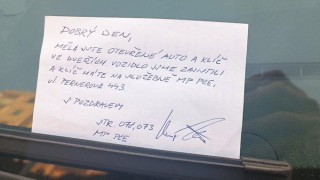 DOBRÝ DEN,
MĚLA JSTE OTEVŘENÉ AUTO A KLÍČ
VE DVEŘÍCH VOZIDLO JSME ZAJISTILI
A KLÍČ MÁTE NA SLUŽEBNĚ MP PCE,
UL PERNEROVA 443
S POZDRAVEM
STR. 076, 073
MP PCE